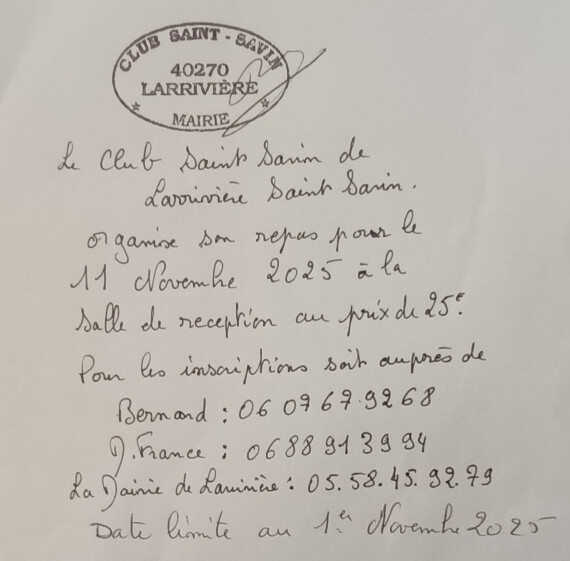 CLUB SAINT-SAVIN
40270
LARRIVIÈRE
MAIRIE
Le Club Saint Savin de
Larrivière Saint Savin.
organise son repas pour le
11 Novembre 2025 à la
Salle de reception au prix de 25€.
Pour les inscriptions soit auprès de
Bernard : 06 07 67.92 68
M. France : 06 88 91 39 94
La Mairie de Larrivière : 05.58.45.92.79
Date limite au 1er Novembre 2025